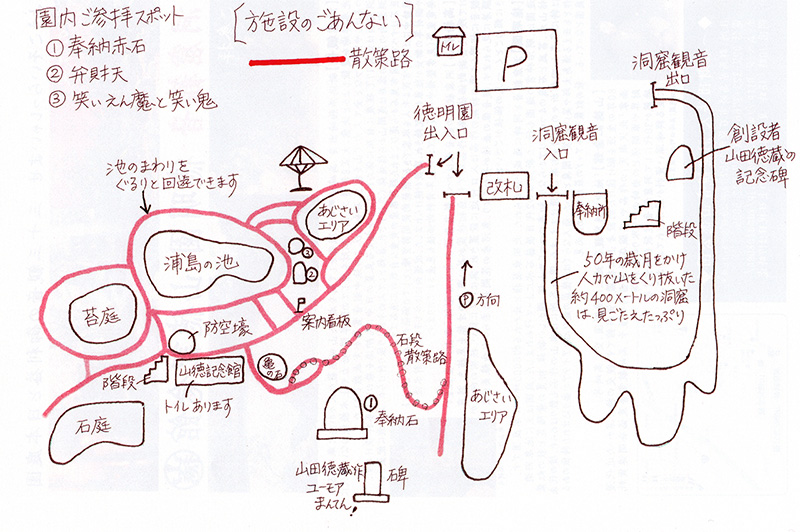 園内ご参拝スポット
① 奉納赤石
② 弁財天
③ 笑いえん魔と笑い鬼
[施設のごあんない]
散策路
トイレ
P
洞窟観音
出口
徳明園
出入口
洞窟観音
入口
改札
奉納所
階段
創設者
山田徳蔵の
記念碑
50年の歳月をかけ
人力で山をくり抜いた
約400メートルの洞窟
は、見ごたえたっぷり
池のまわりを
ぐるりと回遊できます
あじさい
エリア
浦島の池
③
②
案内看板
苔庭
防空壕
階段
山徳記念館
トイレあります
亀の石
石段
散策路
P 方向
あじさい
エリア
石庭
①
奉納石
山田徳蔵作
ユーモア
まんてん!
碑